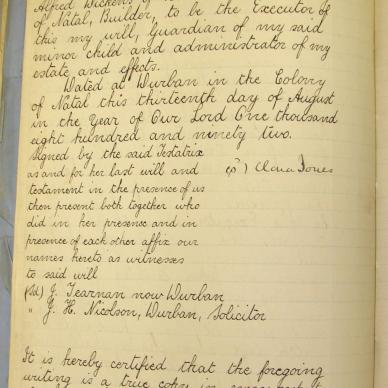 Alfred Wickens of
of Natal, Builder, to be the Executor of
this my will, Guardian of my said
minor child and administrator of my
estate and effects.
Dated at Durban in the Colony
of Natal this thirteenth day of August
in the Year of Our Lord One thousand
eight hundred and ninety two.
Signed by the said Testatrix
as and for her last will and
testament in the presence of us
then present both together who
did in her presence and in
presence of each other affix our
names hereto as witnesses
to said will
Clara Jones
(Sd) J. Tearnan now Durban
" J. H. Nicolson, Durban, Solicitor
It is hereby certified that the foregoing
writing is a true copy in